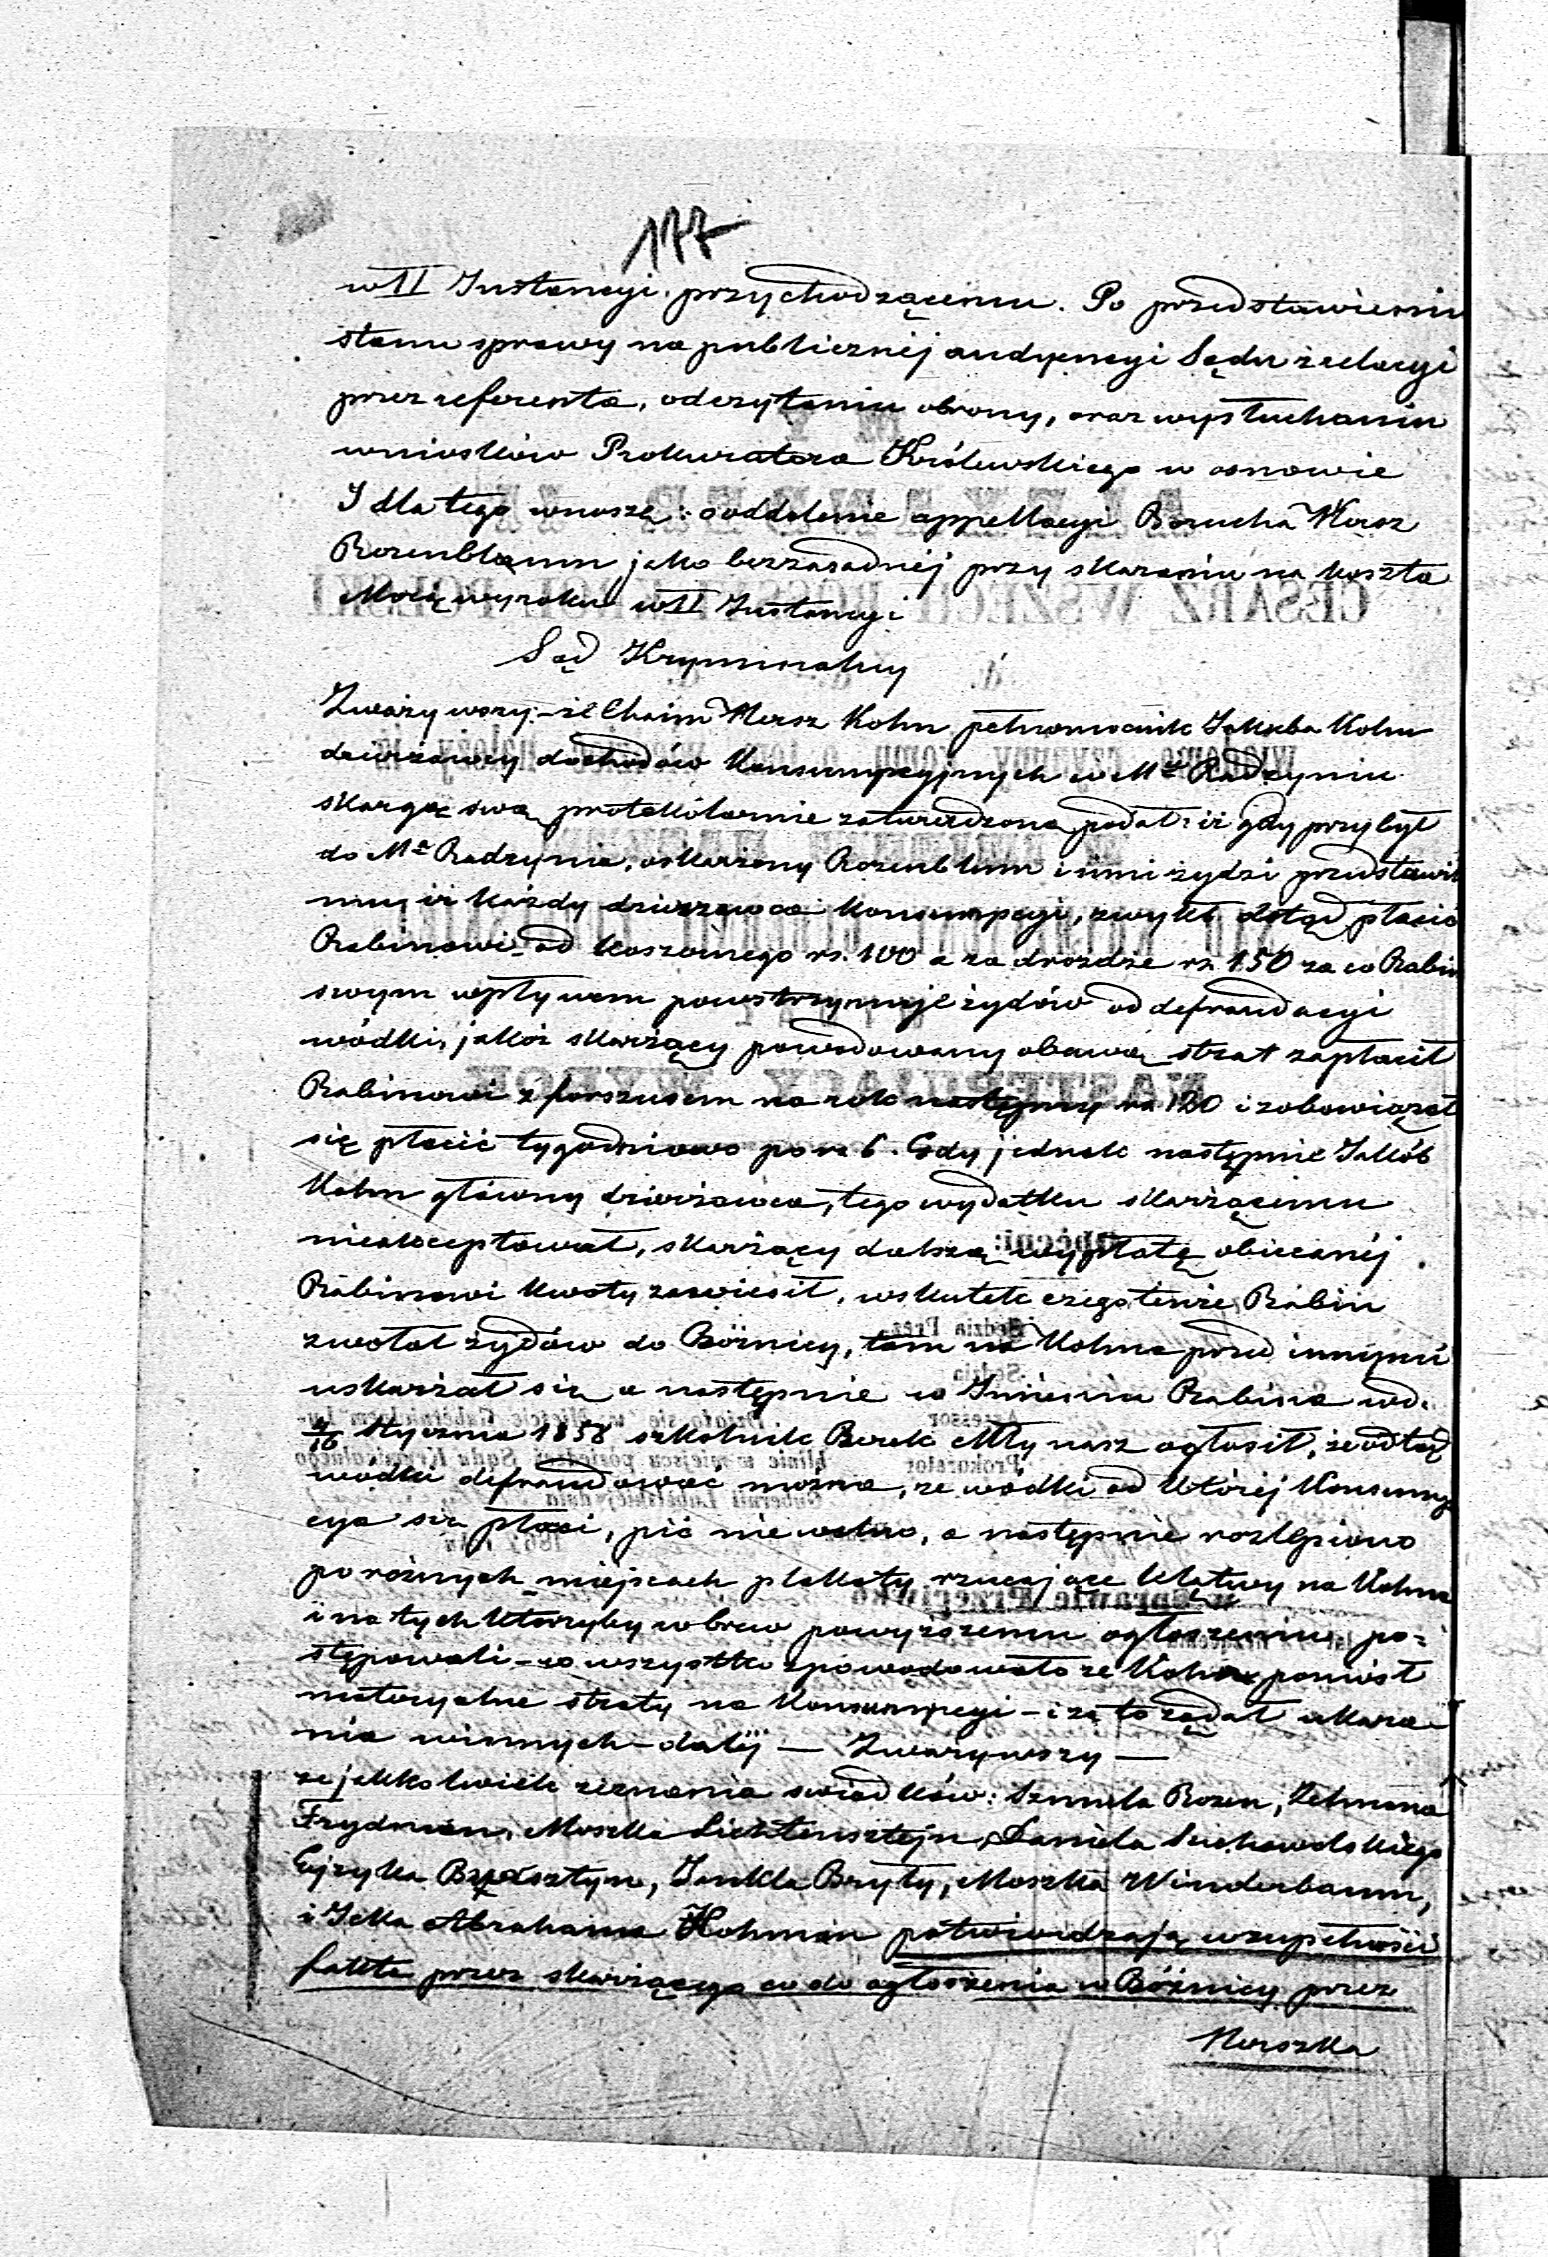 177
w II Instancyi przychodzącemu. Po przedstawieniu
stanu sprawy na publicznéj audyencyi Sądu z relacyi
przez referenta, odczytaniu obrony, oraz wysłuchaniu
wniosków Prokuratora Królewskiego w osnowie
I dla tego wnoszę: o oddalenie appellacyi Borucha Hersz
Rozenblaum jako bezzasadnéj przy skazaniu na koszta
Mocą wyroku w II Instancyi
Sąd Kryminalny
Zważywszy – że Chaim Hersz Kohn pełnomocnik Jakuba Kohn
dzierżawcy dochodów Konsumpcyjnych w Mie Radzyniu
skargę swą protokólarnie zatwierdzoną podał: iż gdy przybył
do Mta Radzynia, oskarżony Rozenblum i inni żydzi przedstawili
mu, iż każdy dzierżawca konsumpcyi, zwykł dotąd płacić
Rabinowi od koszernego rs. 100 a za drożdże rs. 150 za co Rabin
swym wpływem powstrzymuje żydów od defraudacyi
wódki, jakoż skarżący powodowany obawą strat zapłacił
Rabinowi z forszusem na rok następny rs 120 i zobowiązał
się płacić tygodniowo po rs 6. Gdy jednak następnie Jakób
Kohn główny dzierżawca, tego wydatku skarżącemu
nieakceptował, skarżący dalszą wypłatę obiecanéj
Rabinowi kwoty zawiesił, wskutek czego tenże Rabin
zwołał żydów do Bóżnicy, tam na Kohna przed innymi
uskarżał się a następnie w Imieniu Rabina wd.
4/16 stycznia 1858 szkolnik Berek Młynasz ogłosił, że odtąd
wódki defraudować można, że wódki od któréj Konsump
cya się płaci, pić nie wolno, a następnie rozlepiono
po różnych miejscach plakaty rzucające klątwy na Kohna
i na tych którzyby wbrew powyższemu ogłoszeniu po-
stępowali – co wszystko spowodowało że Kohn poniósł
materyalne straty na Konsumpcyi – i za to żądał ukara-
nia winnych – daléj – Zważywszy –
że jakkolwiek zeznania swiadków: Szmula Rozen, Kelmana
Frydman, Moszka Lichtensztejn, Daniela Suchowolskiego
Eyzyka Bursztyn, Jankla Bryły, Moszka Winderbaum,
i Icka Abrahama Hohman potwierdzają wzupełności
fakta przez skarżącego co do ogłoszenia w Bóżnicy przez
Herszka